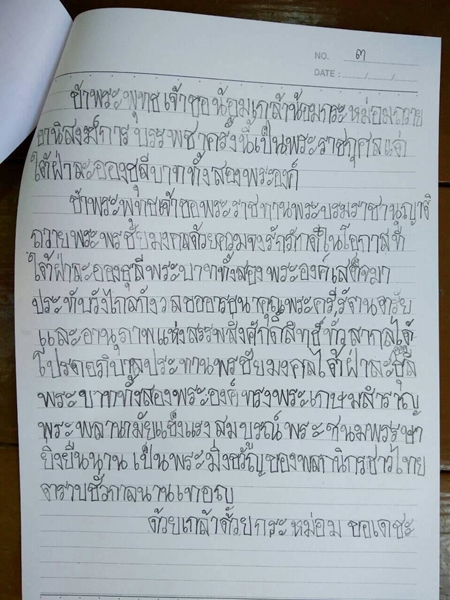 NO. ๓
DATE : / /
ข้าพระพุทธเจ้าขอน้อมเกล้าน้อมกระหม่อมถวาย
อานิสงฆ์การบรรพชาครั้งนี้เป็นพระราชกุศลแด่
ใต้ฝ่าละอองธุลีบาททั้งสองพระองค์
ข้าพระพุทธเจ้าขอพระราชทานพระบรมราชานุญาติ
ถวายพระพรชัยมงคลด้วยความจงรักภักดีในโอกาสที่
ใต้ฝ่าละอองธุลีพระบาททั้งสองพระองค์เสด็จมา
ประทับวังไกลกังวลขออาราธนาคุณพระศรีรัตนตรัย
และอานุภาพแห่งสรรพสิ่งศักดิ์สิทธิ์ทั่วสากลได้
โปรดอภิบาลประทานพรชัยมงคลใต้ฝ่าละอองธุลี
พระบาททั้งสองพระองค์ทรงพระเกษมสำราญ
พระพลานามัยแข็งแรงสมบูรณ์พระชนมพรรษา
ยิ่งยืนนาน เป็นพระมิ่งขวัญของพสกนิกรชาวไทย
ตราบชั่วกาลนานเทอญ
ด้วยเกล้าด้วยกระหม่อม ขอเดชะ